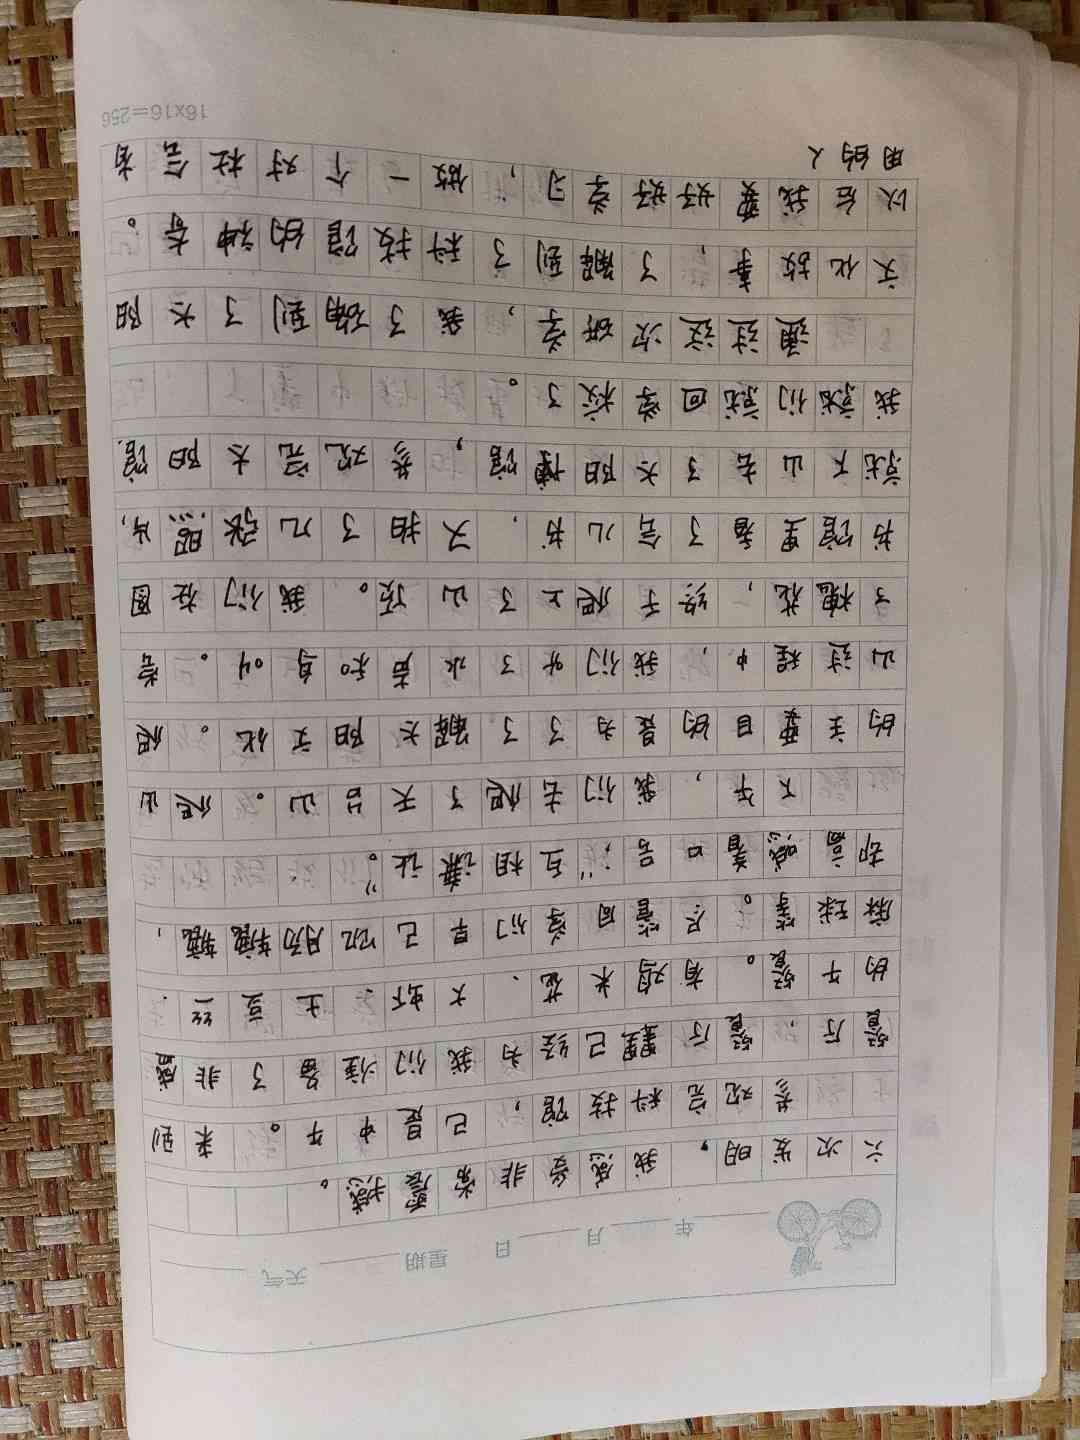 年 月 日 星期 天气
六次发明。我感受非常震撼。
参观完科技馆，已是中午。来到
餐厅，餐厅里已经为我们准备了非盛
的午餐。有鸡米花、大虾、土豆丝、
麻球等。尽管同学们早已饥肠辘辘，
却高喊着口号，“互相谦让。”
下午，我们去爬了天台山。爬山
的主要目的是为了了解太阳文化。爬
山过程中，我们听了水声和鸟叫。尝
了槐花，终于爬上了山顶。我们在图
书馆里看了会儿书，又拍了几张照片，
就下山去了太阳博馆，参观完太阳馆
我就们就回学校了。
通过这次研学，我了确到了太阳
文化故事，了解到了科技馆的神奇。
以后我要好好学习，做一个对社会有
用的人
16x16=256